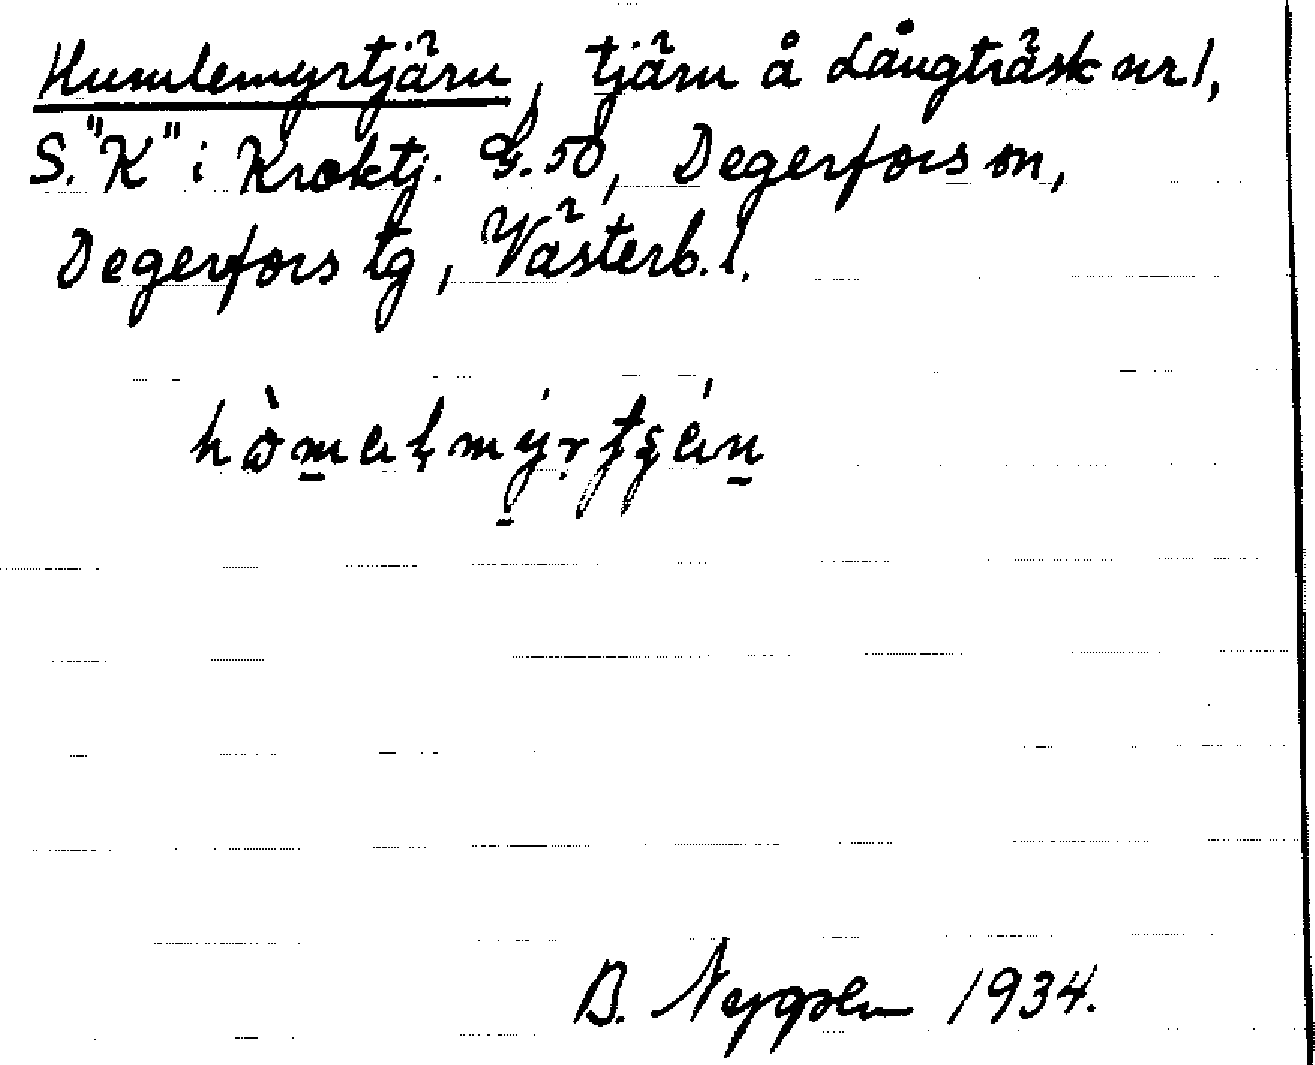 Humlemyrtjärn, tjärn å Långträsk nr 1,
S. "K" i Kroktj. G. 50, Degerfors sn,
Degerfors tg, Västerb. l.
B. 1934.